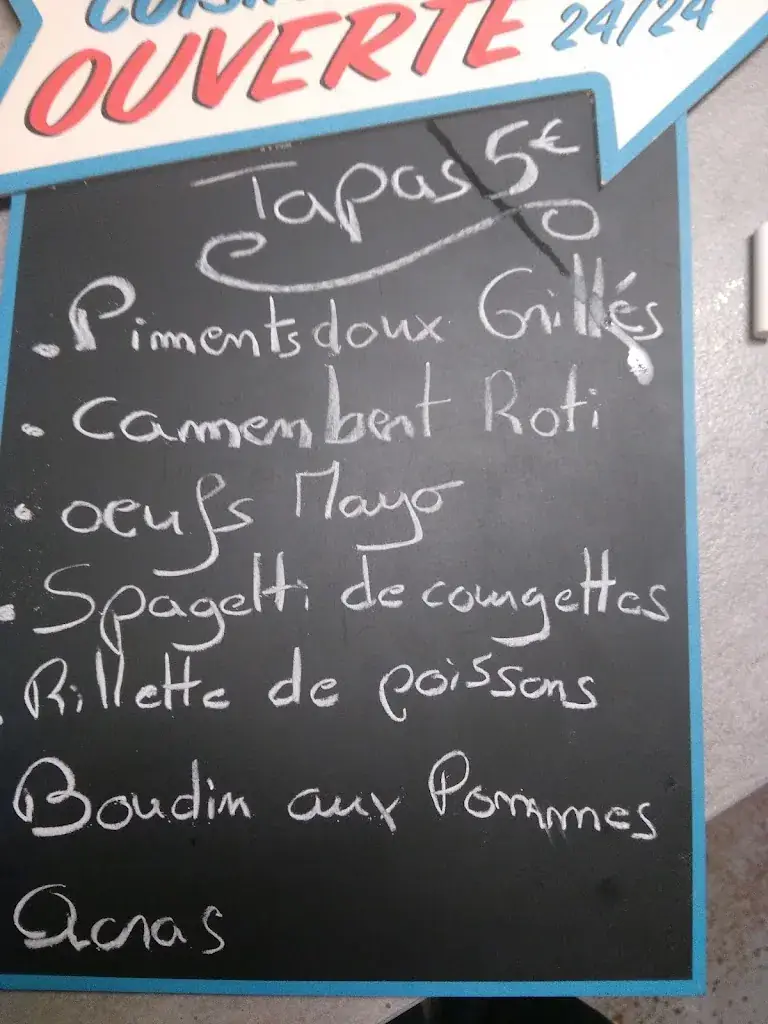 OUVERTE 24/24
Tapas 5€
. Piments doux Grillés
. Camembert Roti
. oeufs Mayo
. Spagetti de courgettes
. Rillette de poissons
Boudin aux Pommes
Acras